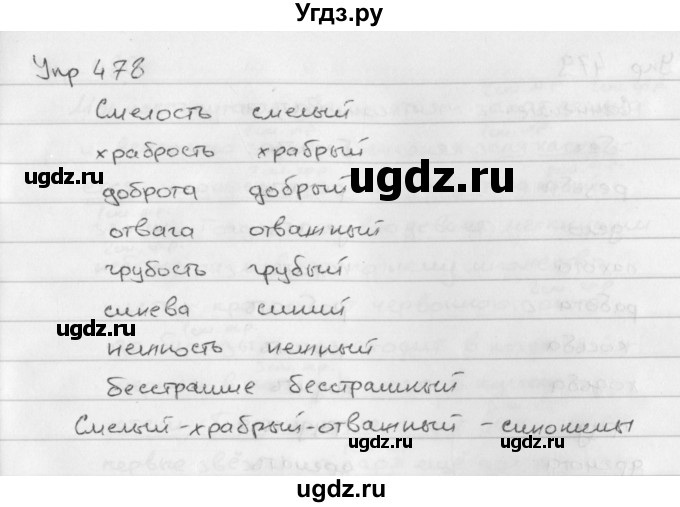 Угдз.ру
Упр 478
Смелость смелый
храбрость храбрый
ugdz.ru
ugdz.ru
доброта добрый
отвага отважный
грубость грубый
синева синий
ugdz.ru
ugdz.ru
нежность нежный
бесстрашие бесстрашный
Смелый-храбрый-отважный - синонимы
ugdz.ru
ugdz.ru
ugdz.ru